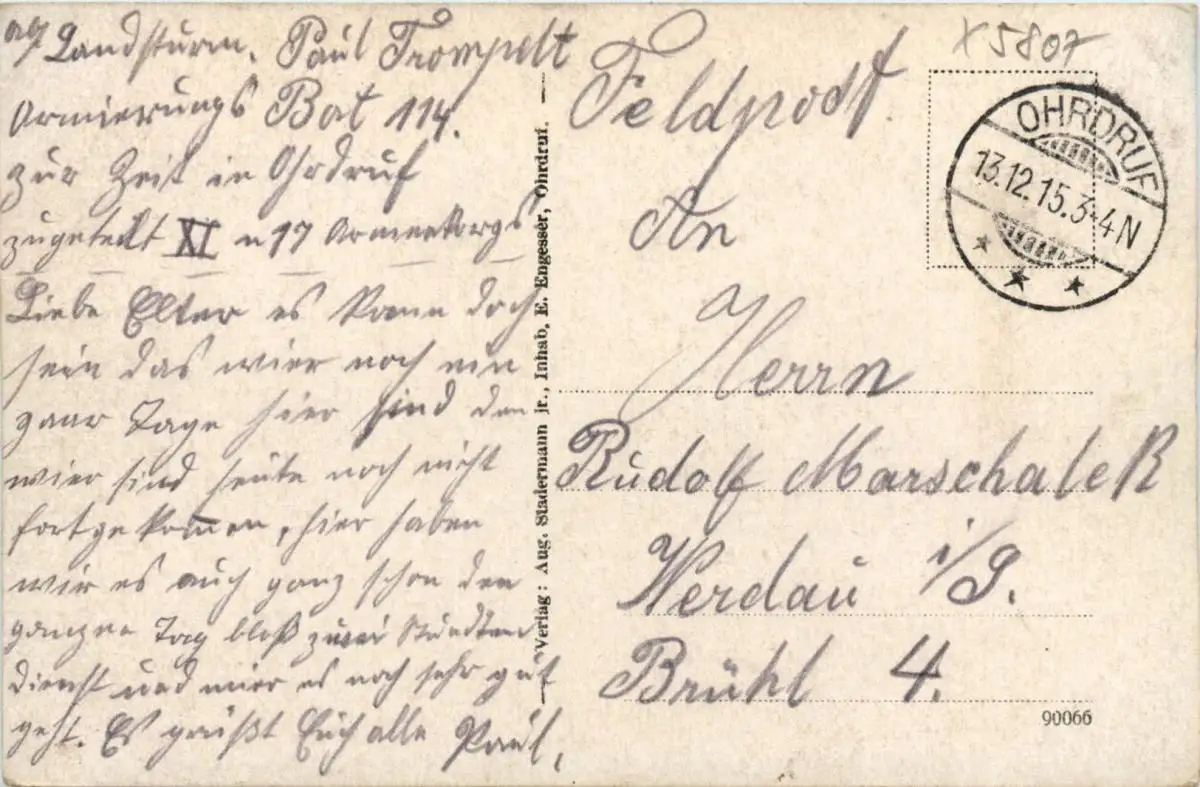 Abs. Landsturm. Paul Trompelt
Armierungs Bat 114.
zur Zeit in Ohrdruf
zugeteilt XI u 17 Armeekorps
Liebe Elter es kann doch
sein das wier noch ein
paar Tage hier sind den
wier sind heute noch nicht
fortgekommen, hier haben
wir es auch ganz schon den
ganzen Tag bloß zwei Stundten
dienst und mier es noch sehr gut
geht. Es grüßt Euch alle Paul,
Verlag: Aug. Stadermann jr., Inhab. E. Engesser, Ohrdruf.
X 5807
Feldpost.
OHRDRUF
13.12.15.3-4N
An
Herrn
Rudolf Marschalek
Werdau i/S.
Brühl 4.
90066